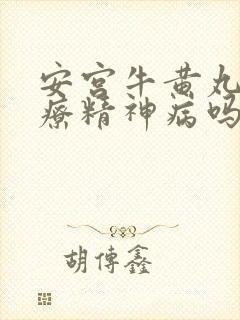 安宫牛黄丸
疗精神病吗
胡传鑫